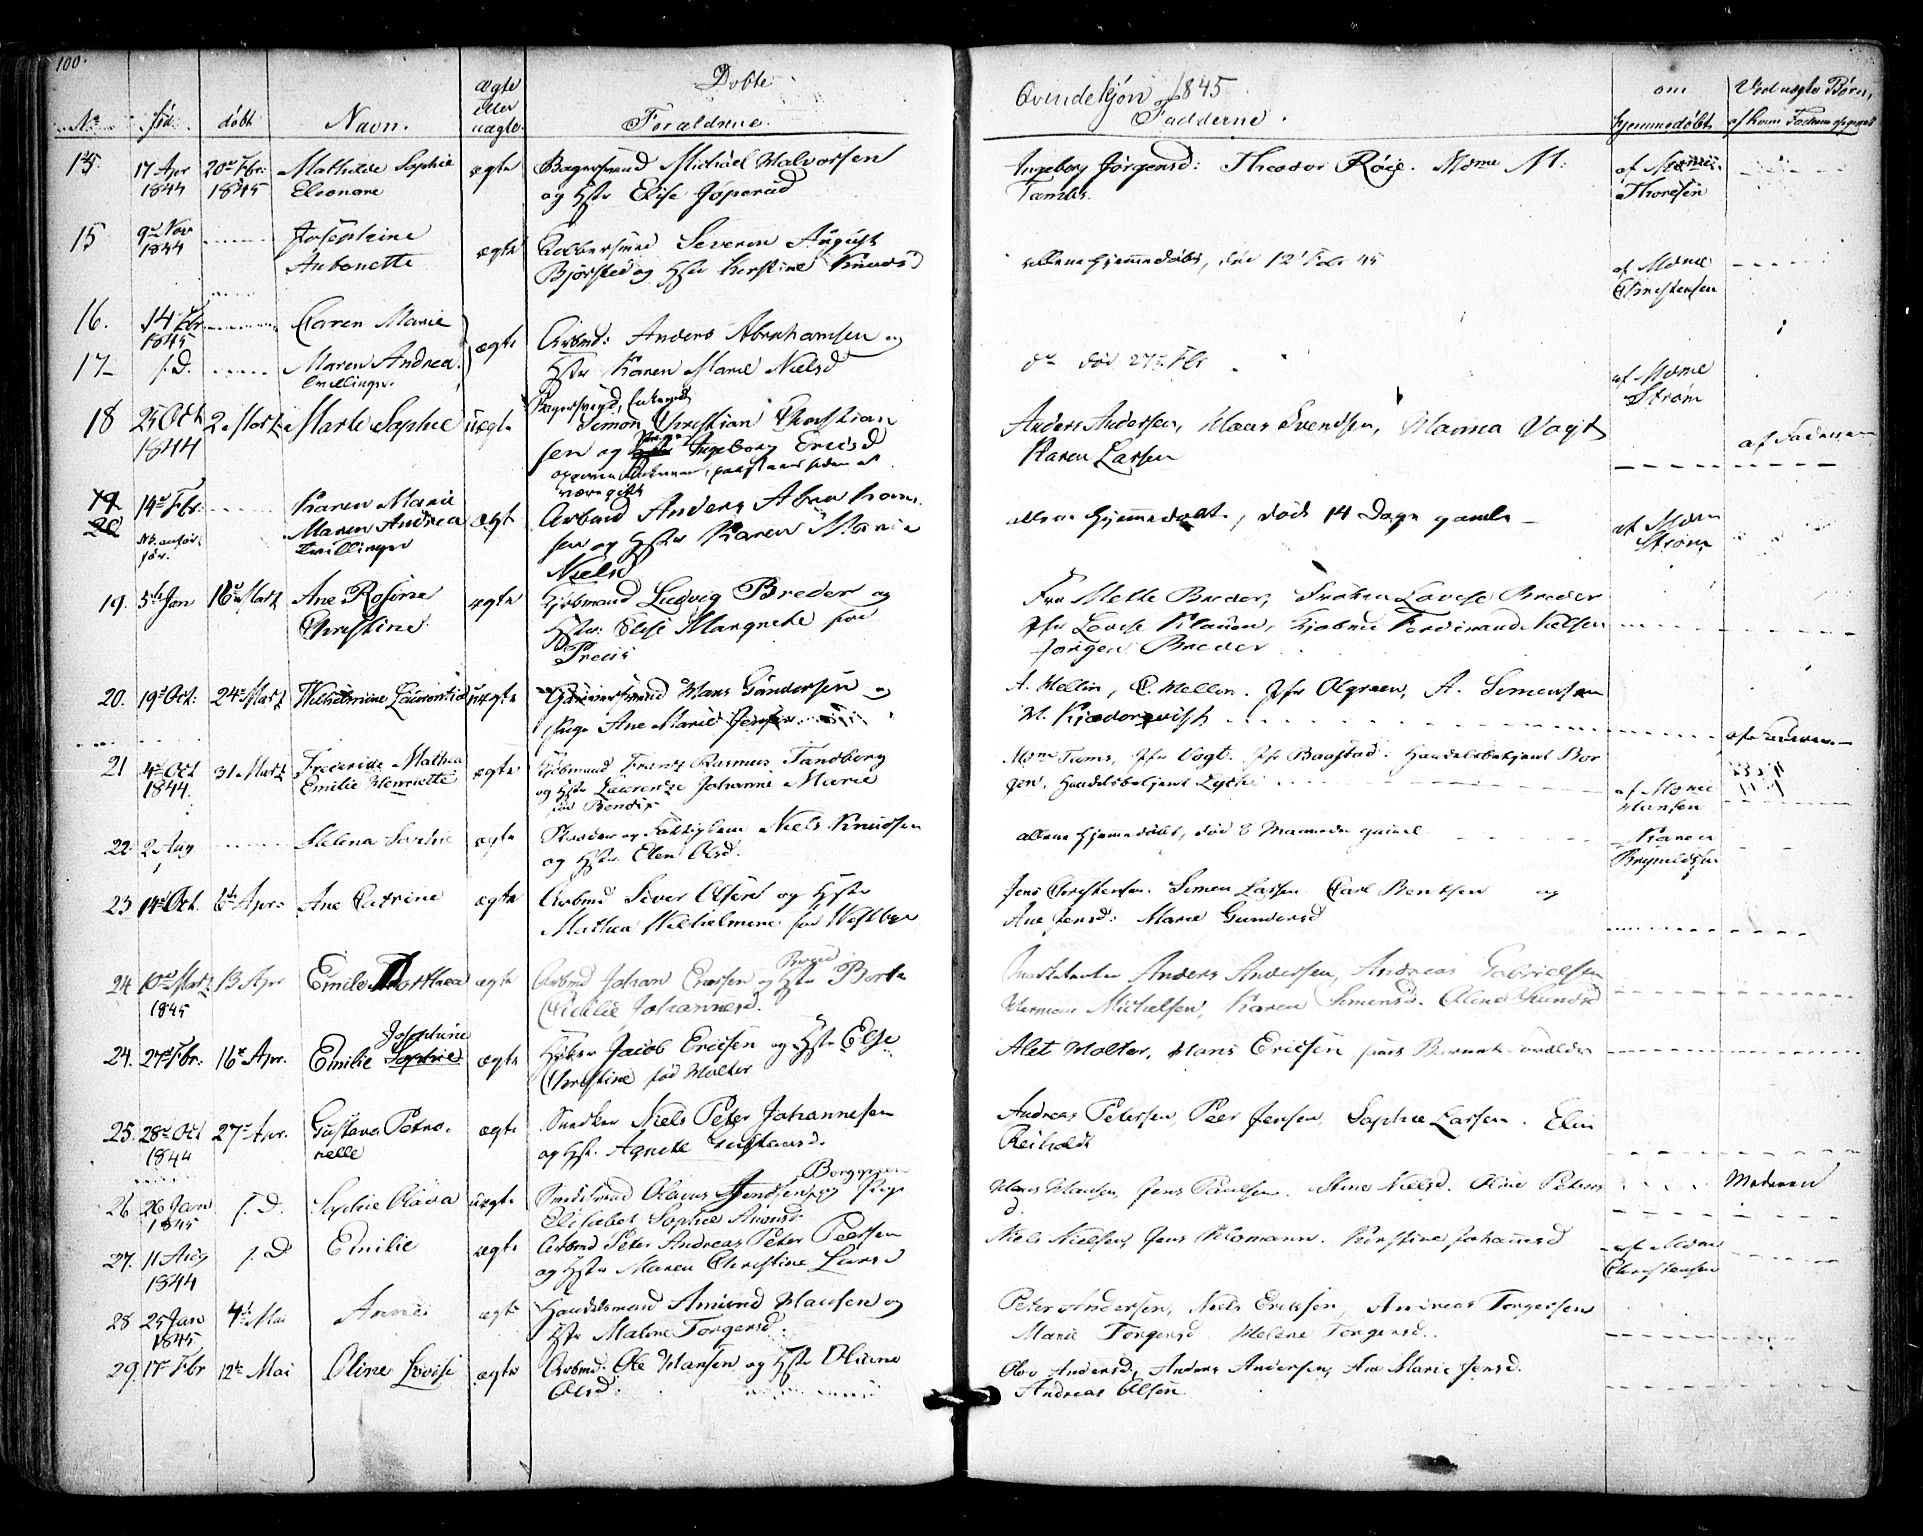 100.
Døbte
Qvindekjøn 1845
No fød. døbt Navn. Ægte eller uægte Forældrene. Fadderne. om hjemmedøbt Ved uægte Børn, af hvem Faderen opgivet
17 Apr 1844 20de Fbr: 1845 Mathilde Sophie Eleonore ægte Bogersmand Michael Halvorsen
og Hstr Elise
Ingeborg Jørgensd: Theodor Røie. Mdme M:
Tambs.
af Mdme Thoresen
15 9de Nov 1844 Josephine Antonette ægte Severin August
Bjørsted og Hstr Kirstine Knudsd
allene hjemmedøbt, død 12te Febr 45
af Mdme Christensen
16. 14 Fbr 1845 Caren Marie
17 s. D. Maren Andrea. Tvillinger. ægte Arbmd: Anders Abrahamsen og
Hstr Karen Marie Nielsd
do død 27de Fbr
af Mdme Strøm
18 25 Oct 1844 2 Martz Marte Sophie uægte
Simon Christian Christian
sen og Pige Ingeborg Ericsd
Anders Andersen, Maas Svendsen, Hanna Vogt
Karen Larsen
af Faderen
19 20 14de Fbr. Karen Marie
Maren Andrea
Tvillinger
NB. anført før.
ægte Arbmd Anders Abraham
sen og Hstr Karen Marie
Nielsd
allene hjemmedøbt, død 14 Dage gamle
af Mdme Strøm
19. 5te Jan 16de Martz Ane Rosine Christine. ægte Kjøbmand Ludvig Breder og
Hstr: Elise Margrete fød
Preus
Fru Mette Breder, Frøken Lovise Breder
Jfr Lovise Klauen, Kjøbmd Ferdinand Nielsen
Jørgen Breder
20. 19de Oct: 24de Martz Wilhelmine Laurentia uægte Hans Gundersen og
Pige Ane Marie Jensen
A. Mellin, C. Mellin. Jfr Olgreen, A. Simensen
M. Kjæderqvist
af Faderen
21 4de Oct 1844 31 Martz Frederikke Mathea Emilie Henriette ægte Kjøbmand Frantz Rasmus Tandberg
og Hstr Laurentze Johanne Marie
fød Bendix
Mdme Tums, Jfr Vogt. Jfr Baastad. Handelsbetjent Bor
gen. Handelsbetjent Lyche
af Mdme Hansen
22. 2 Aug Helena Sophie ægte Niels Knudsen
og Hstr Elen Olsd.
allene hjemmedøbt, død 8 Maaneder gammel
Karen Brynildsen
23 14de Oct. 6te Apr: Ane Catrine ægte Arbmd Siver Olsen og Hstr
Mathea Wilhelmine fød Westbye
Jens Christensen. Simen Larsen Carl Bentsen og
Ane Jensd: Marie Gundersd
24 10de Martz 1845 13 Apr Emilie Dorthea ægte Arbmd Johan Ericsen og Hstr Berte
Cicilie Johannesd.
Anders Andersen, Andreas Gabrielsen
Herman Michelsen, Karen Simensd. Oline
24. 27de Fbr: 16de Apr. Emilie Josephine Sophie ægte Høker Jacob Ericsen og Hstr Else
Christine fød Molter
Alet Molter, Hans Ericsen samt Barnets Forældre
25. 28de Oct 1844 27de Apr. Gustava Petro.
nelle ægte Snedker Niels Peter Johannesen
og Hst. Agnete Gustavsd.
Andreas Petersen, Peer Jensen, Sophie Larsen. Elen
Reiholdt
26 26 Jan 1845 s. D. Sophie Olava uægte Smedsvend Olaus Svendsen, og Pige
Elisabet Sophie
Hans Hansen, Jens Paulsen. Stine Nielsd. Oline Peters
d.
Moderen
27. 11 Aug 1844 s. D Emilie ægte Arbmd Peter Andreas Peter Peersen
og Hstr Maren Christine Larsd
Niels Nielsen, Jens Klomann. Kirstine Johannesd
af Mdme Christensen
28 25 Jan 1845 4de Mai Anne ægte Handelsmand Amund Hansen og
Hstr Maline Torgersd.
Peter Andersen, Niels Ericksen, Andreas Torgersen
Marie Torgersd. Helene Torgersd.
29. 17de Fbr 12te Mai Oline Lovise ægte Arbmd: Ole Hansen og Hstr Oline
Olsd.
Olea Andersd, Anders Andersen, Ane Marie Jensd.
Andreas Olsen